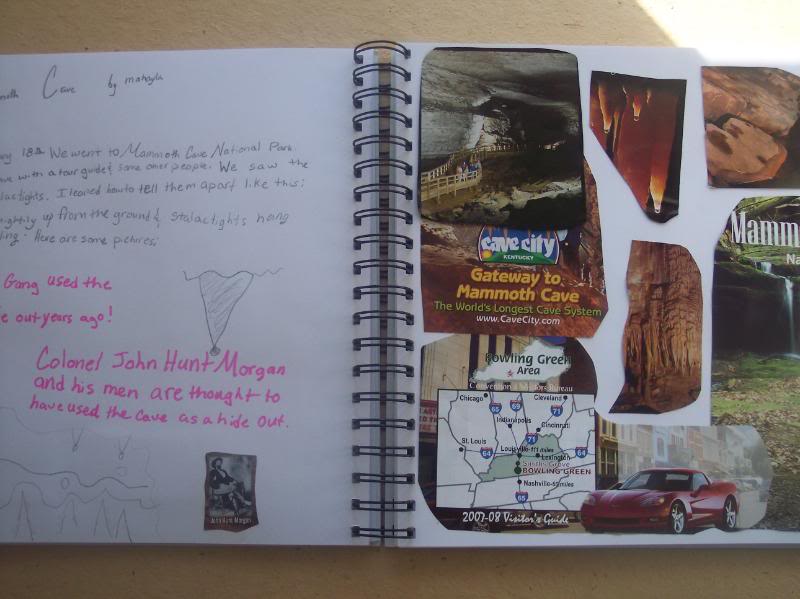 moth Cave by mahayla
ry 18th We went to Mammoth Cave National Park.
ave with a tour guide & some other people. We saw the
lactights. I learned how to tell them apart like this:
nightly up from the ground & stalactights hang
ling. Here are some pictures:
Gang used the
e out years ago!
Colonel John Hunt Morgan
and his men are thought to
have used the cave as a hide out.
John Hunt Morgan
cave city
KENTUCKY
Gateway to
Mammoth Cave
The World's Longest Cave System
www.CaveCity.com
Bowling Green
Area
Convention & Visitors Bureau
Chicago
Cleveland
65
69
71
Indianapolis
Cincinnati
St. Louis
71
64
64
Louisville-111 miles
Lexington
Smiths Grove
BOWLING GREEN
Nashville-65 miles
65
2007-08 Visitor's Guide
Mamm
Na